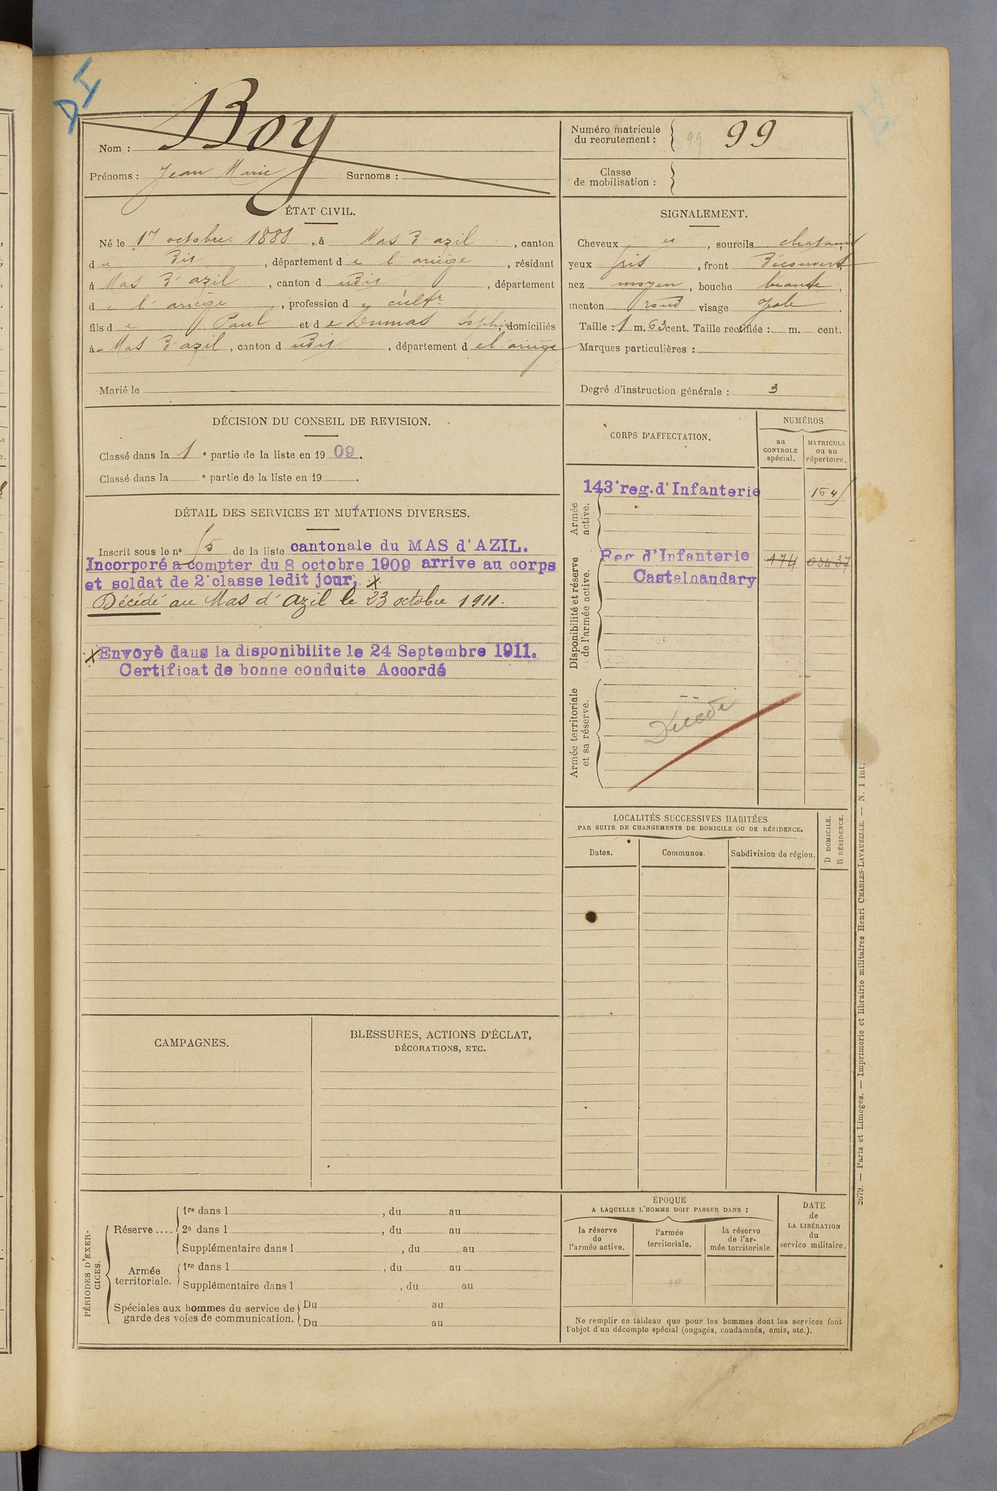 Nom : Boy
Prénoms : Jean Marie Surnoms :
Numéro matricule du recrutement : 99 99
Classe de mobilisation :
ÉTAT CIVIL.
Né le 17 octobre 1888, à Mas d'azil, canton
de dit, département de l'ariège, résidant
à Mas d'azil, canton dudit, département
de l'ariège, profession de cultr
fils de Paul et de Dumas Sophie, domiciliés
à Mas d'azil, canton dudit, département de l'ariège
Marié le
SIGNALEMENT.
Cheveux et, sourcils chatains
yeux gris, front découvert
nez moyen, bouche
menton rond visage
Taille : 1 m. 63 cent. Taille rectifiée : m. cent.
Marques particulières :
Degré d'instruction générale : 3
DÉCISION DU CONSEIL DE REVISION.
Classé dans la 1e partie de la liste en 1909.
Classé dans la e partie de la liste en 19 .
DÉTAIL DES SERVICES ET MUTATIONS DIVERSES.
Inscrit sous le no 15 de la liste cantonale du MAS d'AZIL.
Incorporé à compter du 8 octobre 1909 arrive au corps
et soldat de 2e classe ledit jour, x
Décédé au Mas d'azil le 23 octobre 1911.
x Envoyé dans la disponibilite le 24 Septembre 1911.
Certificat de bonne conduite Accordé
CORPS D'AFFECTATION.
NUMÉROS
au CONTROLE spécial.
MATRICULE ou au répertoire.
Armée active.
143e reg. d'Infanterie
Disponibilité et réserve de l'armée active.
Reg d'Infanterie 174
Castelnaudary
Armée territoriale et sa réserve.
Décédé
LOCALITÉS SUCCESSIVES HABITÉES
PAR SUITE DE CHANGEMENTS DE DOMICILE OU DE RÉSIDENCE.
Dates.
Communes.
Subdivision de région.
D DOMICILE.
R RÉSIDENCE.
CAMPAGNES.
BLESSURES, ACTIONS D'ÉCLAT,
DÉCORATIONS, ETC.
PÉRIODES D'EXERCICES.
Réserve....
1re dans l , du au
2e dans l , du au
Supplémentaire dans l , du au
Armée territoriale.
1re dans l , du au
Supplémentaire dans l , du au
Spéciales aux hommes du service de garde des voies de communication.
Du au
Du au
ÉPOQUE
A LAQUELLE L'HOMME DOIT PASSER DANS :
la réserve de l'armée active.
l'armée territoriale.
la réserve de l'armée territoriale
DATE de LA LIBÉRATION du service militaire.
Ne remplir ce tableau que pour les hommes dont les services font
l'objet d'un décompte spécial (engagés, condamnés, omis, etc.).
2679. — Paris et Limoges. — Imprimerie et librairie militaires Henri CHARLES-LAVAUZELLE. — N. 1 int.